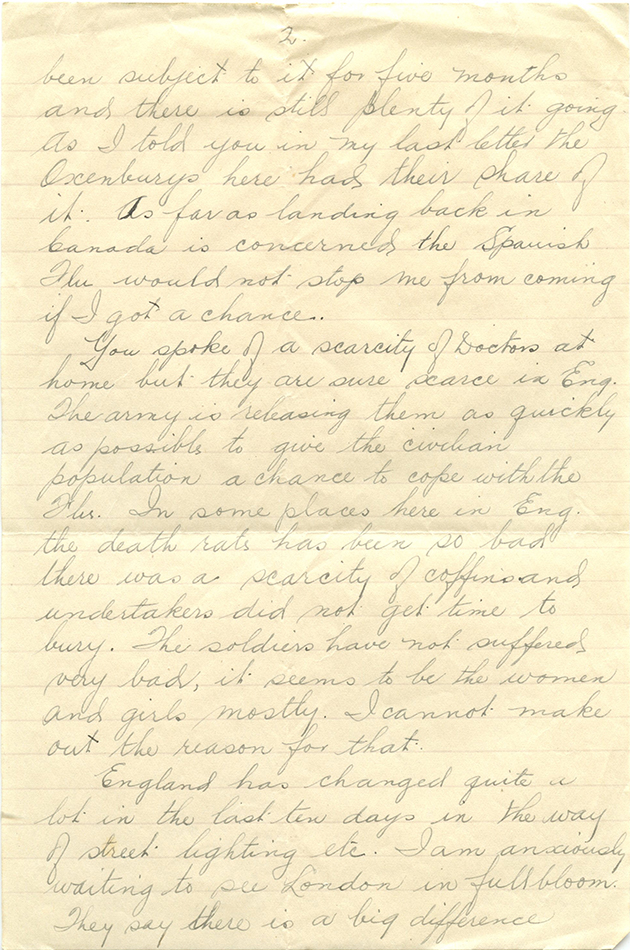 2.
been subject to it for five months
and there is still plenty of it going.
As I told you in my last letter the
Oxenburys here had their share of
it. As far as landing back in
Canada is concerned the Spanish
Flu would not stop me from coming
if I got a chance..
You spoke of a scarcity of Doctors at
home but they are sure scarce in Eng.
The army is releasing them as quickly
as possible to give the civilian
population a chance to cope with the
Flu. In some places here in Eng.
the death rate has been so bad
there was a scarcity of coffins and
undertakers did not get time to
bury. The soldiers have not suffered
very bad, it seems to be the women
and girls mostly. I cannot make
out the reason for that.
England has changed quite a
lot in the last ten days in the way
of street lighting etc. I am anxiously
waiting to see London in full bloom.
They say there is a big difference